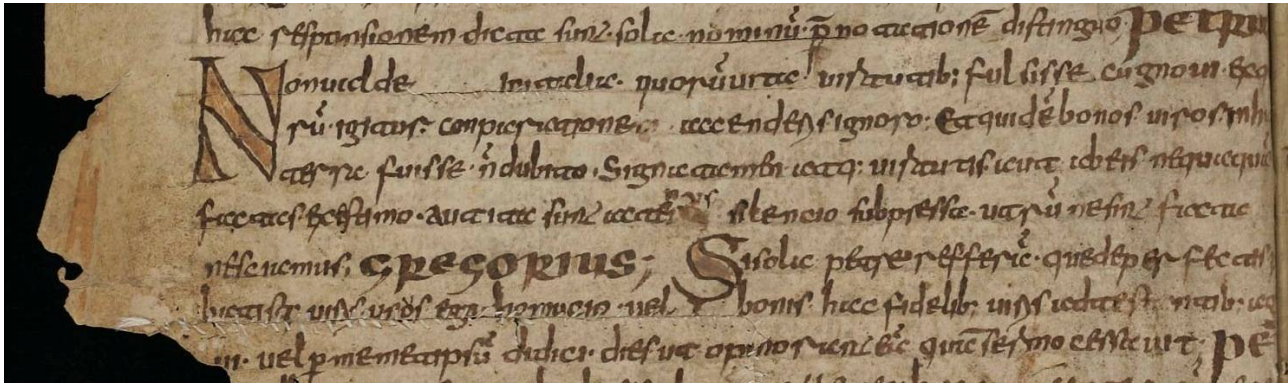 hac responsionem dicata sunt· sola nominū· p̄notationē distinguo; PETRU
Non valde in italia· quorū vita virtutib; fulsisse cognovi· Exquo
rū· igitur· conparatione accenderis ignoro; Et quidē bonos viros in h
terra fuisse· n̄ dubito· Signa tamen atq; virtutis aut ab eis nequaqua
factas existimo· aut ita sunt acte silencio subpressa· utrū ne sint facta
nesciamus; GREGORIUS; Si sola petre refferā· que de perfectis
viris ego homuncio vel bonis hac fidelib; viris adtest ntib;
vi· vel p̄ memetipsū didici· dies ut opinor quā sermo cessavit; PE